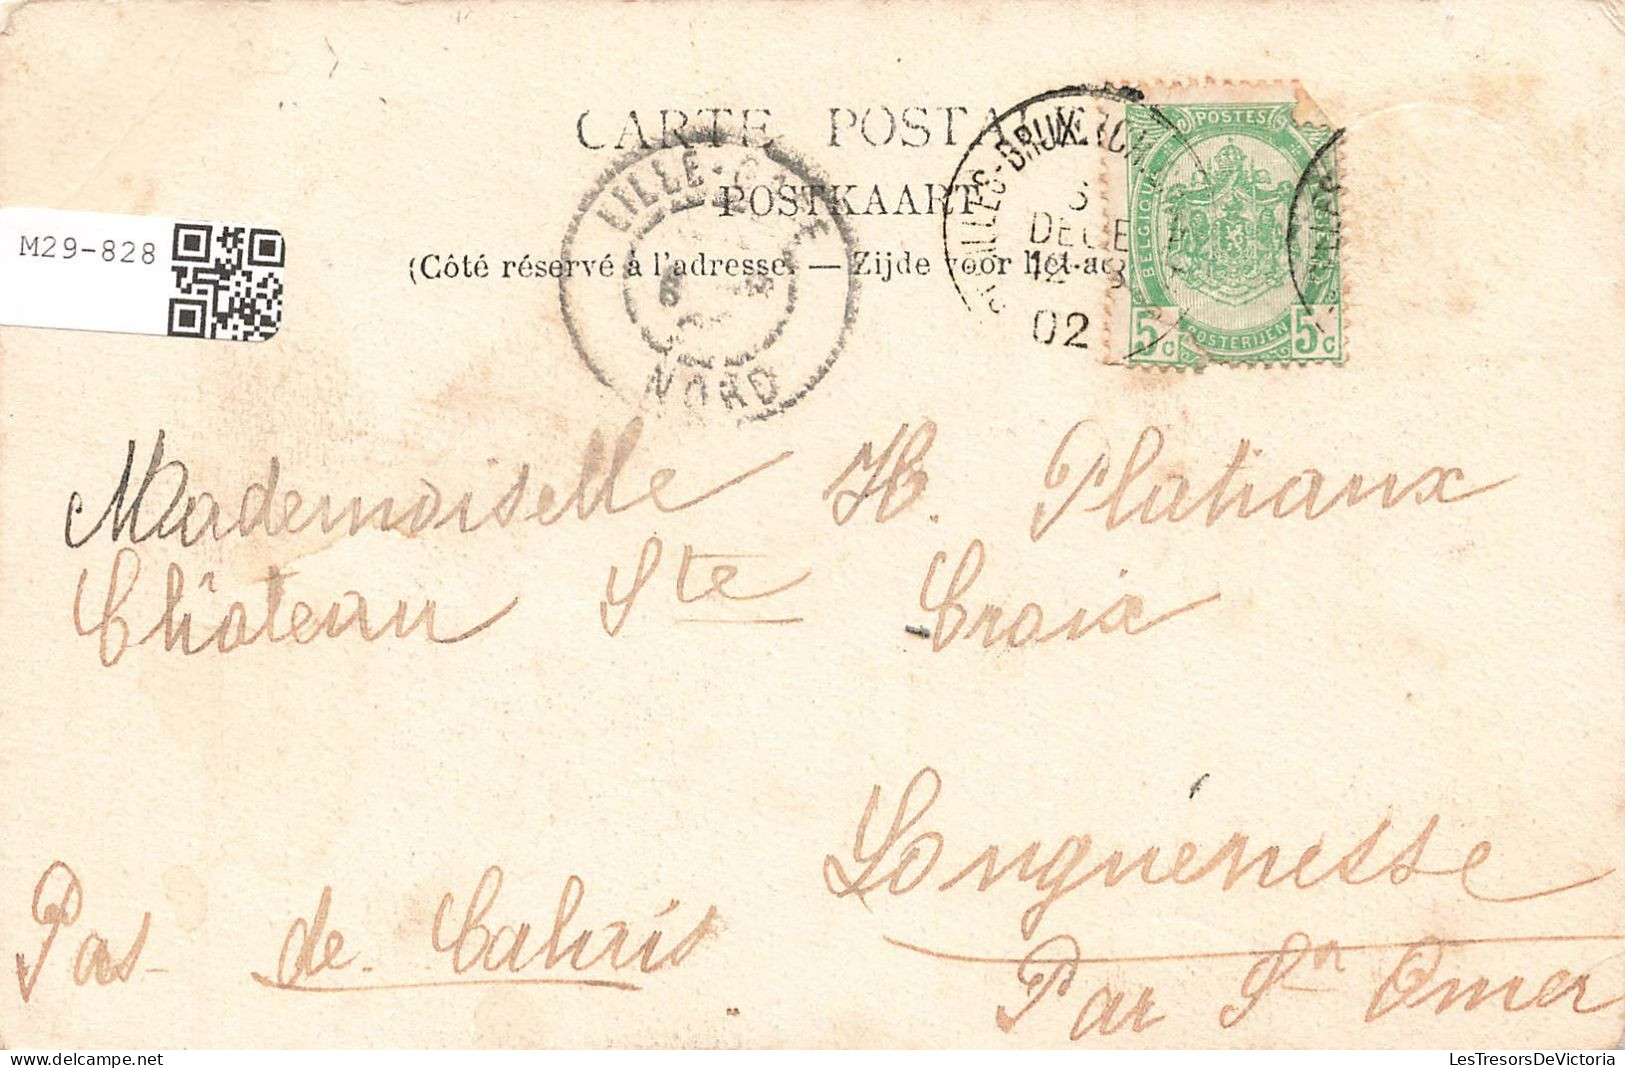 M29-828
CARTE POSTALE
POSTKAART
(Côté réservé à l'adresse. — Zijde voor het
LILLE-GARE
NORD
DECE
02
POSTES
BELGIQUE
POSTERIJEN
5c 5c
Mademoiselle H. Platiaux
Château Ste Croix
Longuenesse
Pas-de-Calais
Par St Omer
LesTresorsDeVictoria